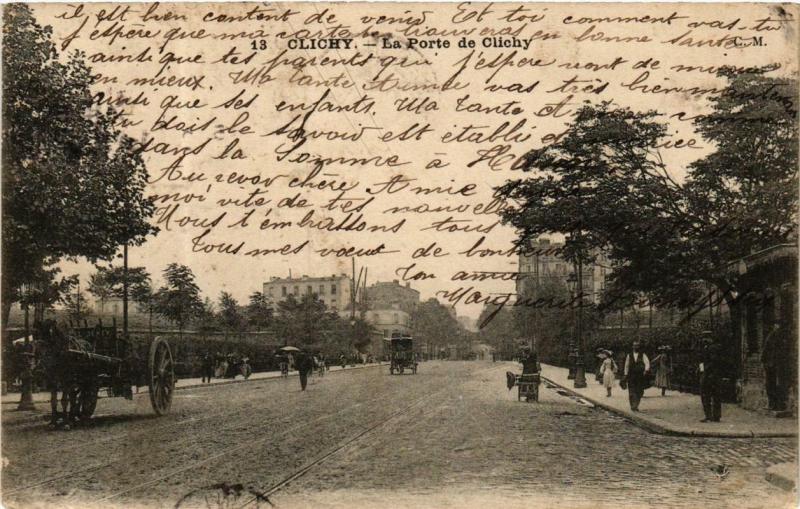 il est bien content de venir Et toi comment vas-tu
j'espère que ma carte trouveras en bonne santé
13 CLICHY. — La Porte de Clichy
C. M.
ainsi que tes parents qui j'espère vont de mieux
en mieux. Ma tante Aimée vas très bien
ainsi que ses enfants. Ma tante A comme
tu dois le savoir est établi
dans la Somme à
Au revoir chère Amie
moi vite de tes nouvelles
Nous t'embrassons tous
tous mes vœux de bonheur
Ton amie
Marguerite